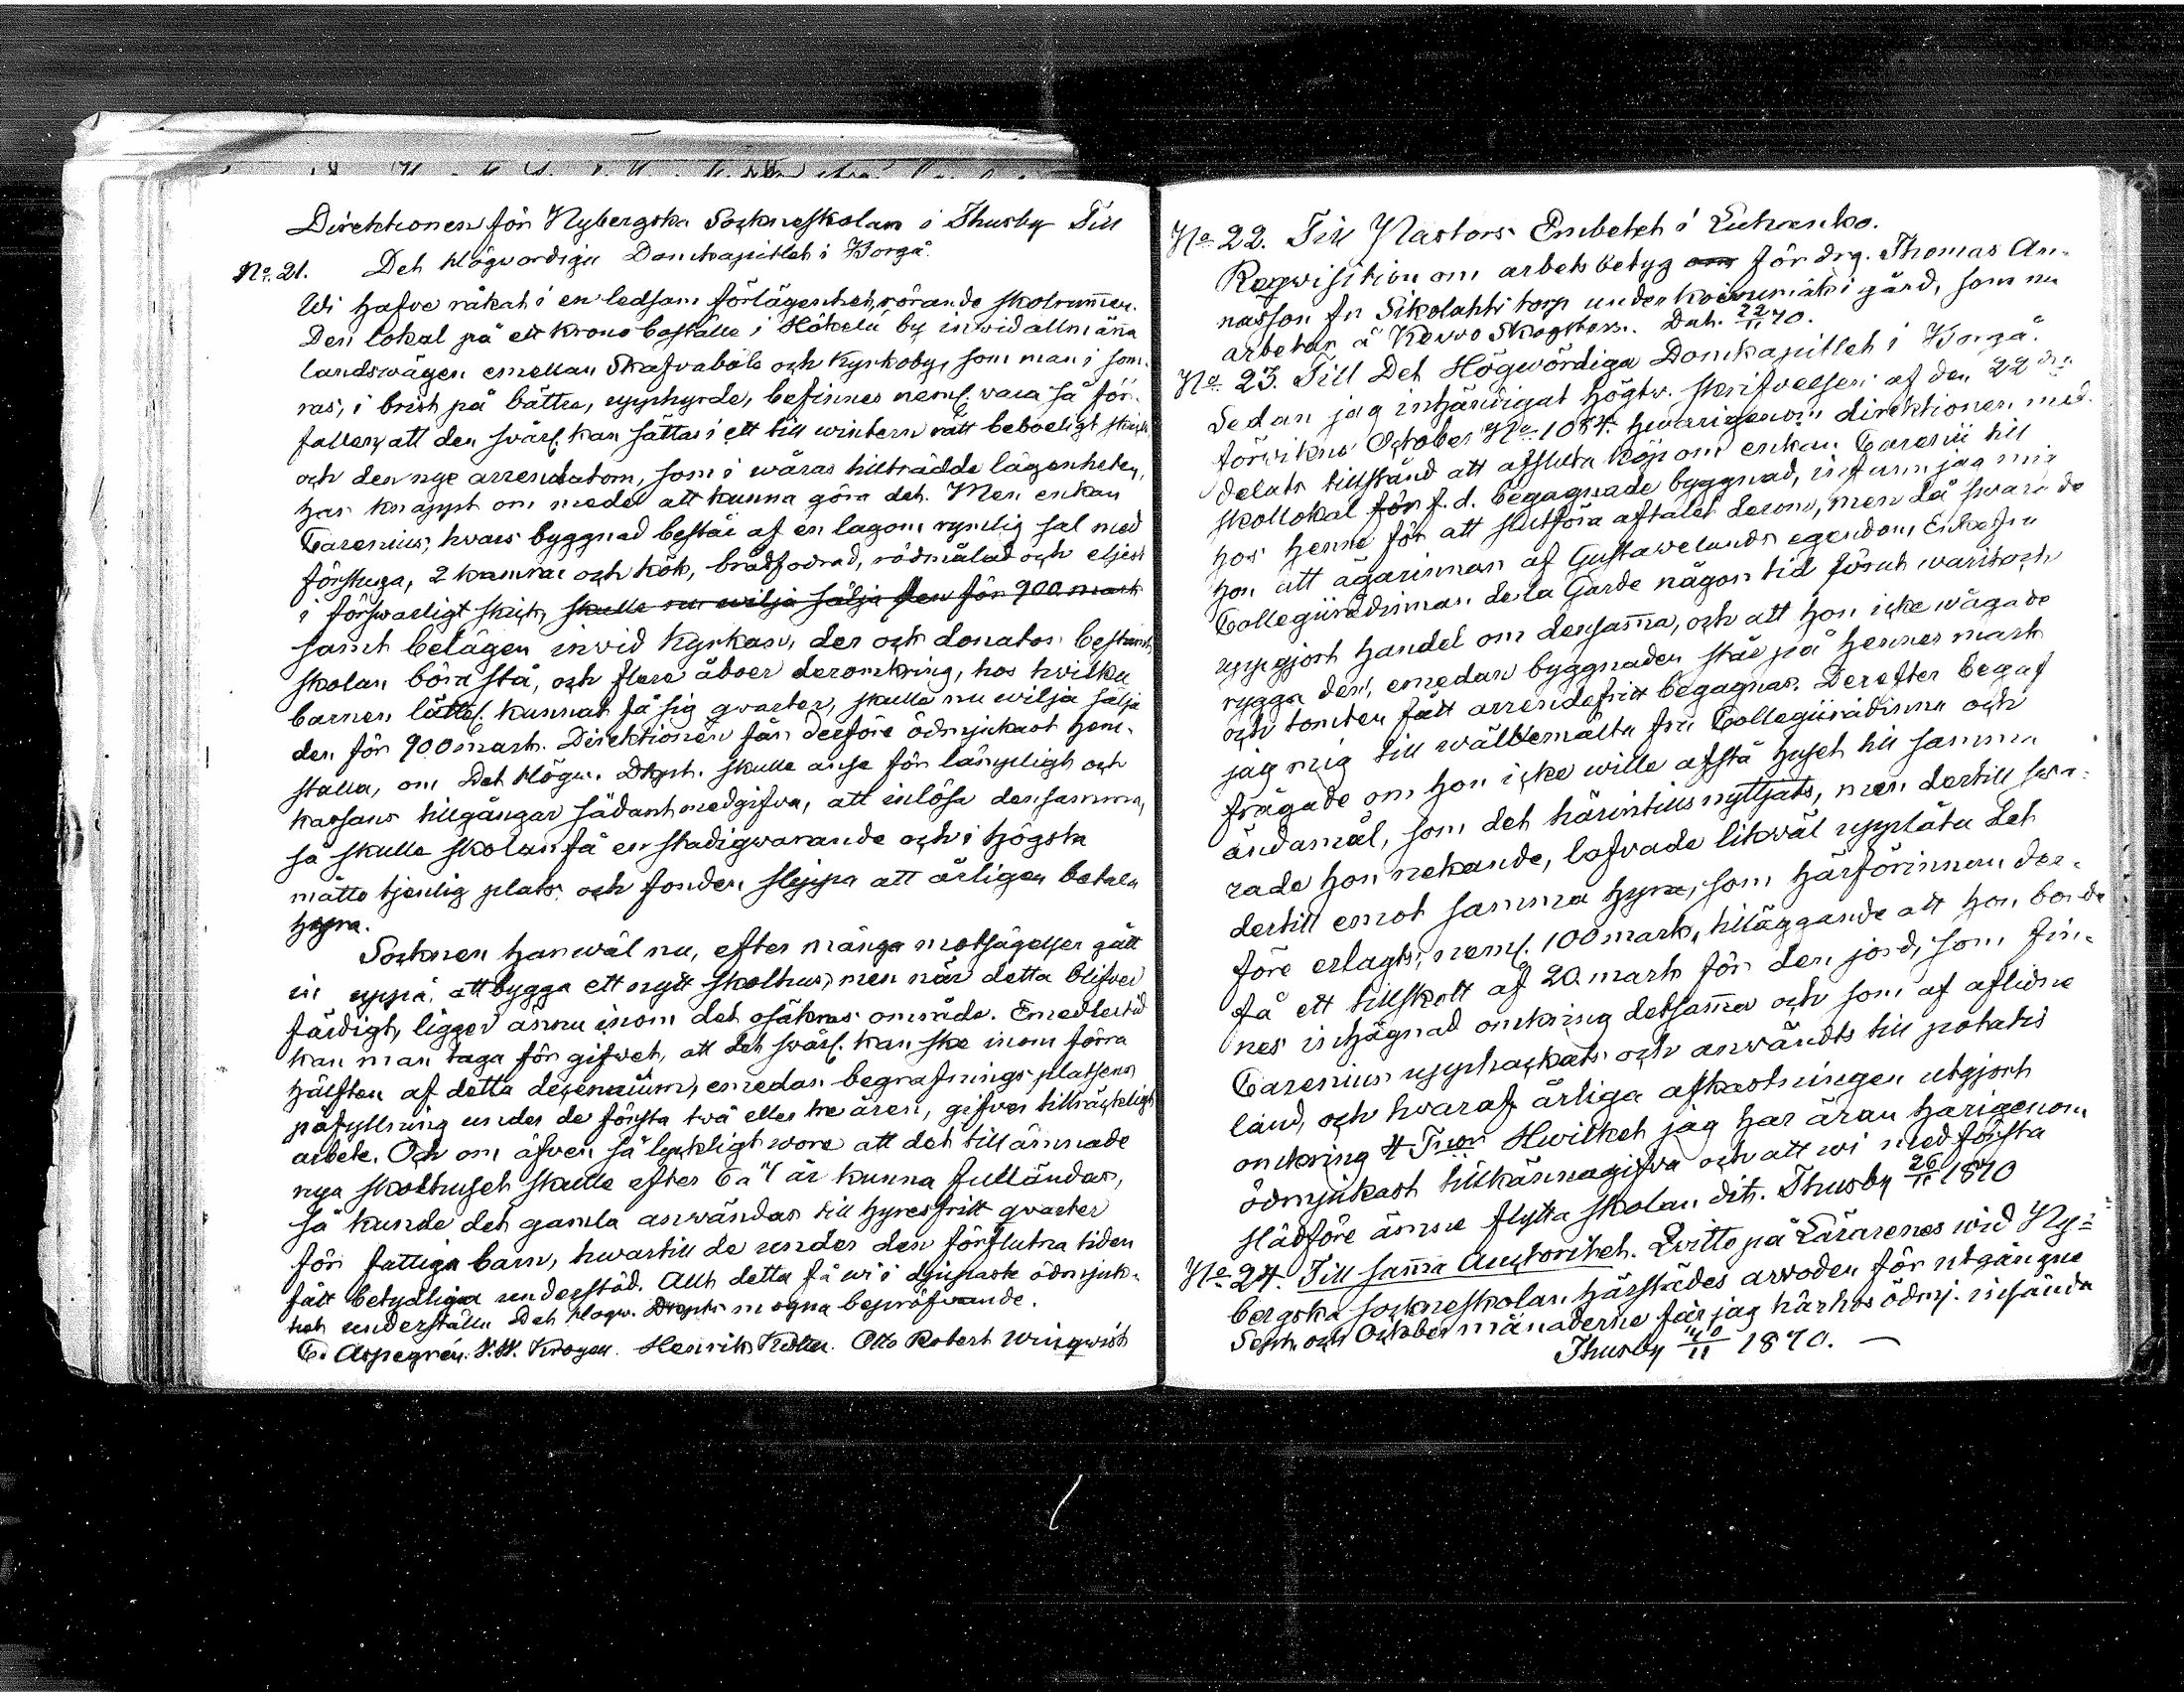 Direktionen för Nybergska Sockneskolan i Thusby Till
No. 21. Det Högvördiga Domkapitlet i Borgå.
Wi hafve råkat i en ledsam förlägenhet, rörande skolrummen.
Den lokal på ett krono boställe i Hökelä by inwid allmäna
landswägen emellan Skafvaböle och Kyrkoby, som man i som-
ras, i brist på bättre, upphyrde, befinnes neml. vara så för-
fallen, att den svårl. kan sättas i ett till wintern rätt beboeligt skick,
och den nye arrendatorn, som i wåras tillträdde lägenheten,
har knappt om medel att kunna göra det. Men enkan
Carenius, hvars byggnad består af en lagom rymlig sal med
förstuga, 2 kamrar och kök, brädfodrad, rödmålad och eljest
i förswarligt skick, skulle nu wilja sälja den för 900 mark
samt belägen inwid kyrkan, der och donator bestämt
skolan böra stå, och flere åboer deromkring, hos hvilka
barnen lättel. kunnat få sig qwarter, skulle nu wilja sälja
den för 900 mark. Direktionen får derföre ödmjukast hem-
ställa, om Det Högw. Dkpt. skulle anse för lämpligt och
kassans tillgångar sådant medgifva, att inlösa densamma,
så skulle skolan få en stadigwarande och i högsta
måtto tjenlig plats, och fonden slippa att årligen betala
hyra.
Socknen har wäl nu, efter många motsägelser gått
in uppå, att bygga ett nytt skolhus, men när detta blifver
färdigt, ligger ännu inom det osäkras område. Emedlertid
kan man taga för gifwet, att det svårl. kan ske inom förra
hälften af detta decennium, emedan begrafningsplatsens
påfyllning under de första två eller tre åren, gifver tillräckligt
arbete. Och om äfven så lyckligt wore att det tillämnade
nya skolhuset skulle efter 6 a 7 år kunna fulländas,
så kunde det gamla anwändas till hyresfritt qwarter
för fattiga barn, hwartill de under den förflutna tiden
fått betydliga understöd. Allt detta få wi i djupaste ödmjuk-
het underställa Det Högw. Dkpts mogna bepröfwande.
C. Aspegrén. Henrik Otto Robert Wingqwist
No. 22. Till Pastors Embetet i Euhranko.
Reqwisition om arbets betyg om för drg. Thomas An-
nasson fr Sikolahti torp under gård, som nu
arbetar å Kervo Skogstorp. Dat. 22/11 70.
No. 23. Till Det Högwördiga Domkapitlet i Borgå.
Sedan jag inhändigat Högtw. skrifvelsen af den 22dra
förwikne October No. 1084. hwarigenom direktionen med-
delats tillstånd att afsluta köp om enkan Carenii till
skollokal för f. d. begagnade byggnad, infann jag mig
hos henne för att slutföra aftalet derom, men då svarade
hon att ägarinnan af Gustawelunds egendom, Enkefru
Collegiirådinnan de la Garde någon tid förut warit och
uppgjort handel om densamma, och att hon icke wågade
rygga den, emedan byggnaden står på hennes mark
och tomten fått arrendefritt begagnas. Derefter begaf
jag mig till wälbemälta fru Collegiirådinna och
frågade om hon icke wille afstå huset till samma
ändamål, som det härintills nyttjats, men dertill swa-
rade hon nekande, lofvade likwäl upplåta det
dertill emot samma hyra, som härförinnan der-
före erlagts, neml. 100 mark, tilläggande att hon borde
få ett tillskott af 20 mark för den jord, som fin-
nes inhägnad omkring detsamma och som af aflidne
Carenius upphackats och anwändts till potatis
land, och hvaraf årliga afkastningen utgjort
omkring 4 Tnor. Hwilket jag har äran härigenom
ödmjukast tillkännagifva och att wi med första
slädföre ämne flytta skolan dit. Thusby 26/11 1870
No. 24. Till samma Auctoritet. Qvitto på Lärarenes wid Ny-
bergska sockneskolan härstädes arvoden för utgångne
Sept. och October månaderne får jag härhos ödmj. insända
Thusby /11 1870. —